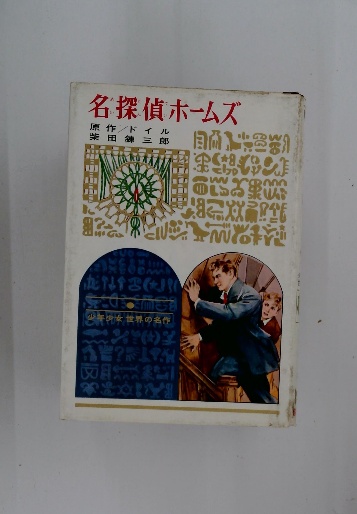 名探偵ホームズ
原作/ドイル
柴田錬三郎
少年少女世界の名作